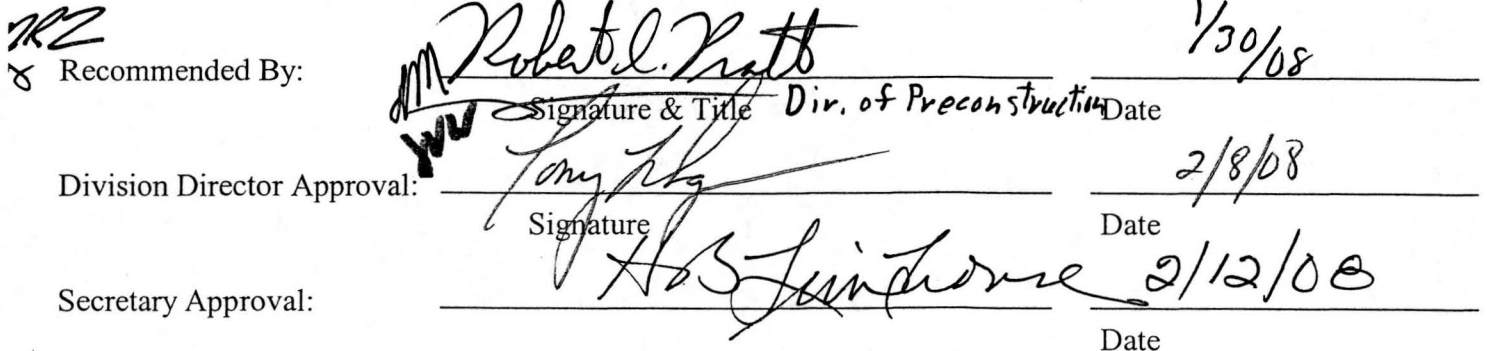 Recommended By: Robert 1/30/08
Signature & Title Div. of Preconstruction Date
Division Director Approval: Tony 2/8/08
Signature Date
Secretary Approval: 2/12/08
Date